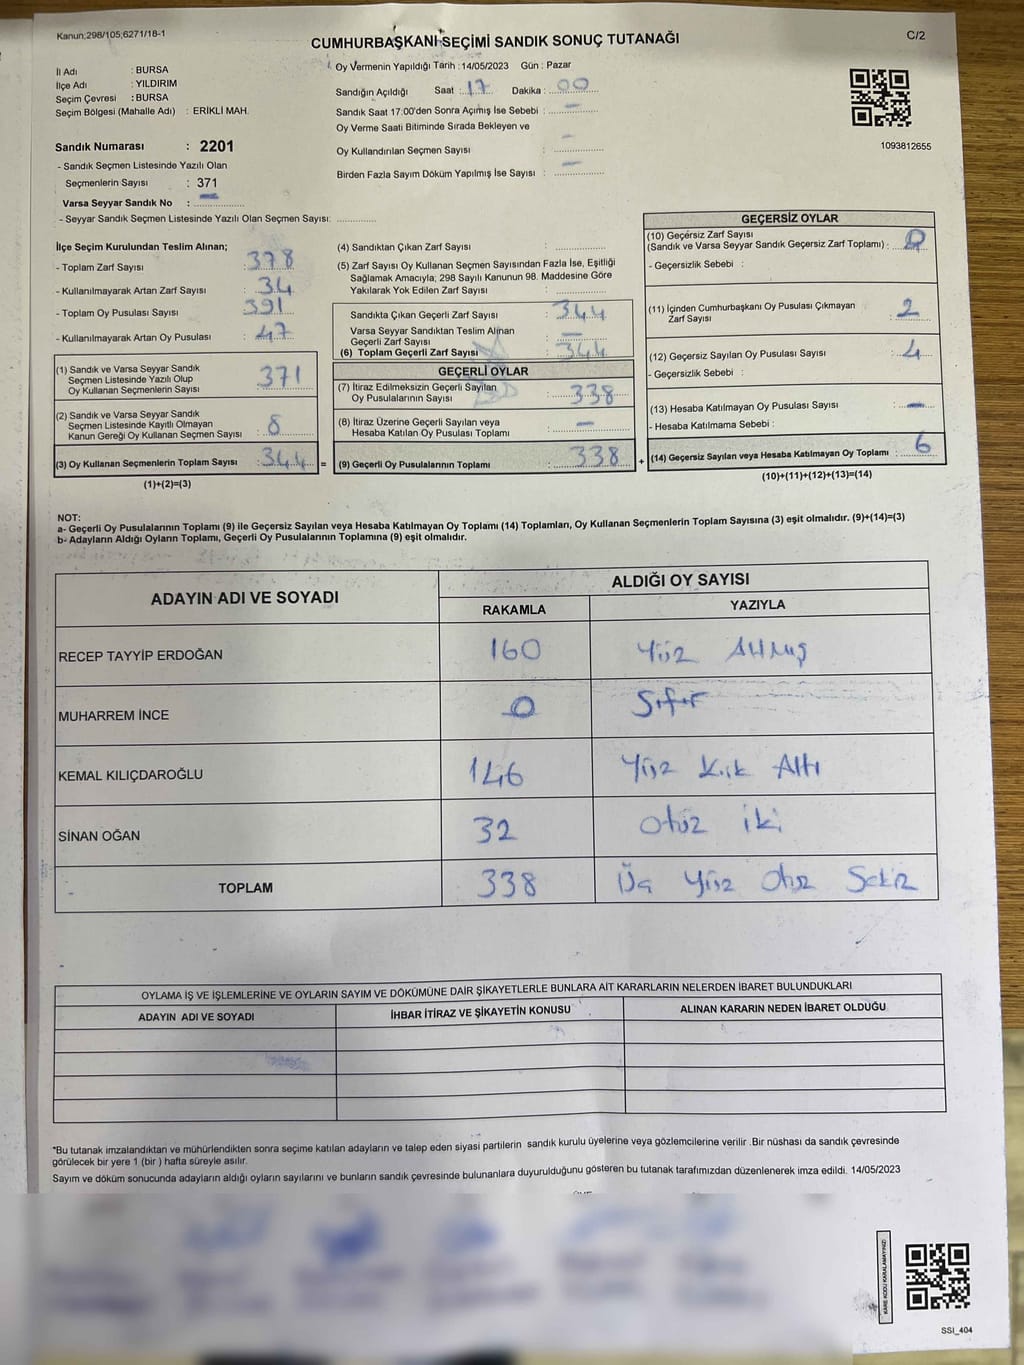 Kanun;298/105;6271/18-1
C/2
CUMHURBAŞKANI SEÇİMİ SANDIK SONUÇ TUTANAĞI
İl Adı : BURSA
İlçe Adı : YILDIRIM
Seçim Çevresi : BURSA
Seçim Bölgesi (Mahalle Adı) : ERİKLİ MAH.
Oy Vermenin Yapıldığı Tarih : 14/05/2023 Gün : Pazar
Sandığın Açıldığı Saat : 17 Dakika : 00
Sandık Saat 17:00'den Sonra Açılmış İse Sebebi : —
Oy Verme Saati Bitiminde Sırada Bekleyen ve
Oy Kullandırılan Seçmen Sayısı : —
Birden Fazla Sayım Döküm Yapılmış İse Sayısı : —
1093812655
Sandık Numarası : 2201
- Sandık Seçmen Listesinde Yazılı Olan
Seçmenlerin Sayısı : 371
Varsa Seyyar Sandık No : —
- Seyyar Sandık Seçmen Listesinde Yazılı Olan Seçmen Sayısı:
İlçe Seçim Kurulundan Teslim Alınan;
- Toplam Zarf Sayısı : 378
- Kullanılmayarak Artan Zarf Sayısı : 34
- Toplam Oy Pusulası Sayısı : 391
- Kullanılmayarak Artan Oy Pusulası : 47
(1) Sandık ve Varsa Seyyar Sandık
Seçmen Listesinde Yazılı Olup
Oy Kullanan Seçmenlerin Sayısı : 371
(2) Sandık ve Varsa Seyyar Sandık
Seçmen Listesinde Kayıtlı Olmayan
Kanun Gereği Oy Kullanan Seçmen Sayısı : 8
(3) Oy Kullanan Seçmenlerin Toplam Sayısı : 344 =
(1)+(2)=(3)
(4) Sandıktan Çıkan Zarf Sayısı :
(5) Zarf Sayısı Oy Kullanan Seçmen Sayısından Fazla İse, Eşitliği
Sağlamak Amacıyla; 298 Sayılı Kanunun 98. Maddesine Göre
Yakılarak Yok Edilen Zarf Sayısı :
Sandıkta Çıkan Geçerli Zarf Sayısı : 344
Varsa Seyyar Sandıktan Teslim Alınan
Geçerli Zarf Sayısı : —
(6) Toplam Geçerli Zarf Sayısı : 344
GEÇERLİ OYLAR
(7) İtiraz Edilmeksizin Geçerli Sayılan
Oy Pusulalarının Sayısı : 338
(8) İtiraz Üzerine Geçerli Sayılan veya
Hesaba Katılan Oy Pusulası Toplamı : —
(9) Geçerli Oy Pusulalarının Toplamı : 338 +
GEÇERSİZ OYLAR
(10) Geçersiz Zarf Sayısı
(Sandık ve Varsa Seyyar Sandık Geçersiz Zarf Toplamı) : 0
- Geçersizlik Sebebi :
(11) İçinden Cumhurbaşkanı Oy Pusulası Çıkmayan
Zarf Sayısı : 2
(12) Geçersiz Sayılan Oy Pusulası Sayısı : 4
- Geçersizlik Sebebi :
(13) Hesaba Katılmayan Oy Pusulası Sayısı : —
- Hesaba Katılmama Sebebi :
(14) Geçersiz Sayılan veya Hesaba Katılmayan Oy Toplamı : 6
(10)+(11)+(12)+(13)=(14)
NOT:
a- Geçerli Oy Pusulalarının Toplamı (9) ile Geçersiz Sayılan veya Hesaba Katılmayan Oy Toplamı (14) Toplamları, Oy Kullanan Seçmenlerin Toplam Sayısına (3) eşit olmalıdır. (9)+(14)=(3)
b- Adayların Aldığı Oyların Toplamı, Geçerli Oy Pusulalarının Toplamına (9) eşit olmalıdır.
ADAYIN ADI VE SOYADI
ALDIĞI OY SAYISI
RAKAMLA YAZIYLA
RECEP TAYYİP ERDOĞAN 160 Yüz Altmış
MUHARREM İNCE 0 Sıfır
KEMAL KILIÇDAROĞLU 146 Yüz Kırk Altı
SİNAN OĞAN 32 Otuz iki
TOPLAM 338 Üç Yüz Otuz Sekiz
OYLAMA İŞ VE İŞLEMLERİNE VE OYLARIN SAYIM VE DÖKÜMÜNE DAİR ŞİKAYETLERLE BUNLARA AİT KARARLARIN NELERDEN İBARET BULUNDUKLARI
ADAYIN ADI VE SOYADI İHBAR İTİRAZ VE ŞİKAYETİN KONUSU ALINAN KARARIN NEDEN İBARET OLDUĞU
*Bu tutanak imzalandıktan ve mühürlendikten sonra seçime katılan adayların ve talep eden siyasi partilerin sandık kurulu üyelerine veya gözlemcilerine verilir .Bir nüshası da sandık çevresinde
görülecek bir yere 1 (bir ) hafta süreyle asılır.
Sayım ve döküm sonucunda adayların aldığı oyların sayılarını ve bunların sandık çevresinde bulunanlara duyurulduğunu gösteren bu tutanak tarafımızdan düzenlenerek imza edildi. 14/05/2023
KARE KODU KARALAMAYINIZ!
SSI_404